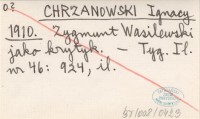 CHRZANOWSKI Ignacy
1910. Zygmunt Wasilewski
jako krytyk. – Tyg. Il.
nr 46: 924, il.